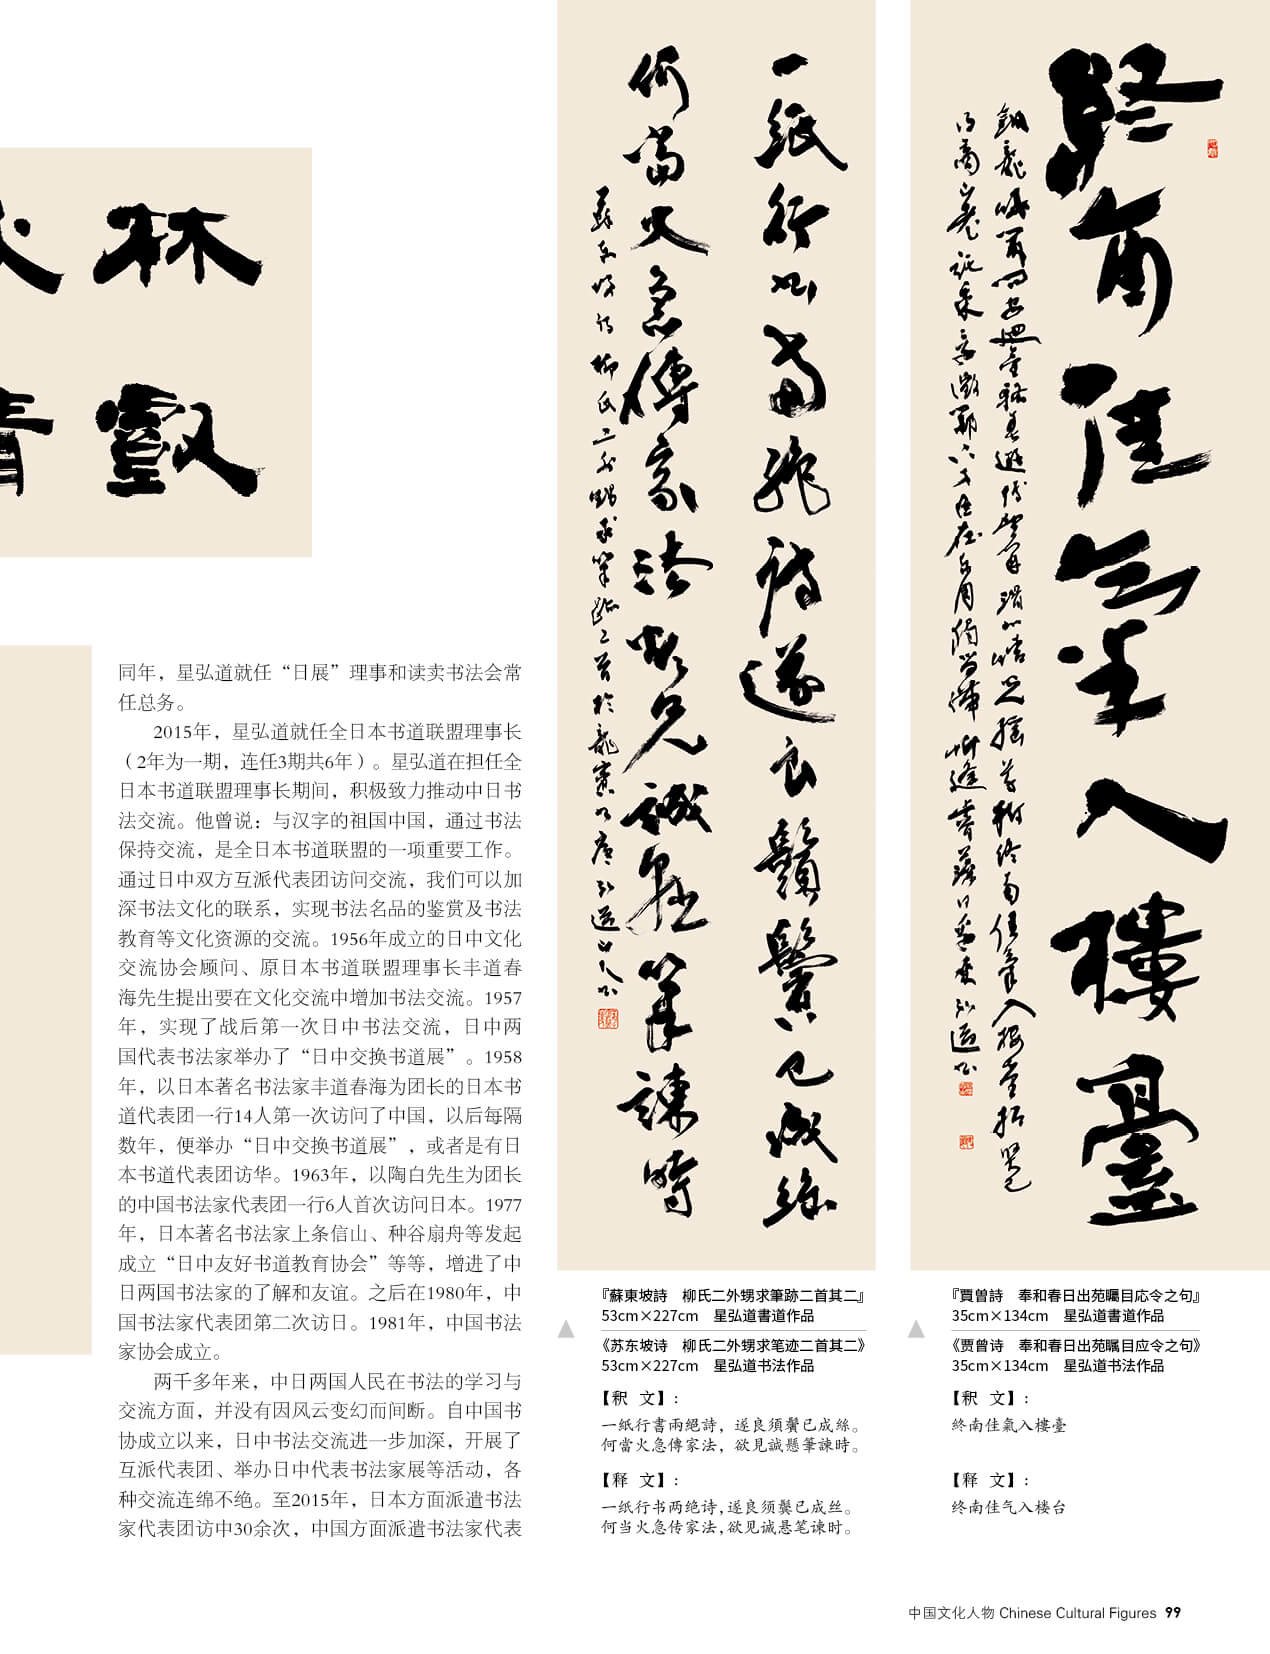 林
叡
同年，星弘道就任“日展”理事和读卖书法会常
任总务。
2015年，星弘道就任全日本书道联盟理事长
（2年为一期，连任3期共6年）。星弘道在担任全
日本书道联盟理事长期间，积极致力推动中日书
法交流。他曾说：与汉字的祖国中国，通过书法
保持交流，是全日本书道联盟的一项重要工作。
通过日中双方互派代表团访问交流，我们可以加
深书法文化的联系，实现书法名品的鉴赏及书法
教育等文化资源的交流。1956年成立的日中文化
交流协会顾问、原日本书道联盟理事长丰道春
海先生提出要在文化交流中增加书法交流。1957
年，实现了战后第一次日中书法交流，日中两
国代表书法家举办了“日中交换书道展”。1958
年，以日本著名书法家丰道春海为团长的日本书
道代表团一行14人第一次访问了中国，以后每隔
数年，便举办“日中交换书道展”，或者是有日
本书道代表团访华。1963年，以陶白先生为团长
的中国书法家代表团一行6人首次访问日本。1977
年，日本著名书法家上条信山、种谷扇舟等发起
成立“日中友好书道教育协会”等等，增进了中
日两国书法家的了解和友谊。之后在1980年，中
国书法家代表团第二次访日。1981年，中国书法
家协会成立。
两千多年来，中日两国人民在书法的学习与
交流方面，并没有因风云变幻而间断。自中国书
协成立以来，日中书法交流进一步加深，开展了
互派代表团、举办日中代表书法家展等活动，各
种交流连绵不绝。至2015年，日本方面派遣书法
家代表团访中30余次，中国方面派遣书法家代表
一紙行書兩絕詩遂良鬚鬢已成絲
何當火急傳家法欲見誠懸筆諫時
『蘇東坡詩　柳氏二外甥求筆跡二首其二』
53cm×227cm　星弘道書道作品
《苏东坡诗　柳氏二外甥求笔迹二首其二》
53cm×227cm　星弘道书法作品
【釈 文】：
一紙行書兩絕詩，遂良須鬢已成絲。
何當火急傳家法，欲見誠懸筆諫時。
【释 文】：
一纸行书两绝诗，遂良须鬓已成丝。
何当火急传家法，欲见诚悬笔谏时。
終南佳氣入樓臺
『賈曽詩　奉和春日出苑矚目応令之句』
35cm×134cm　星弘道書道作品
《贾曾诗　奉和春日出苑瞩目应令之句》
35cm×134cm　星弘道书法作品
【釈 文】：
終南佳氣入樓臺
【释 文】：
终南佳气入楼台
中国文化人物 Chinese Cultural Figures 99